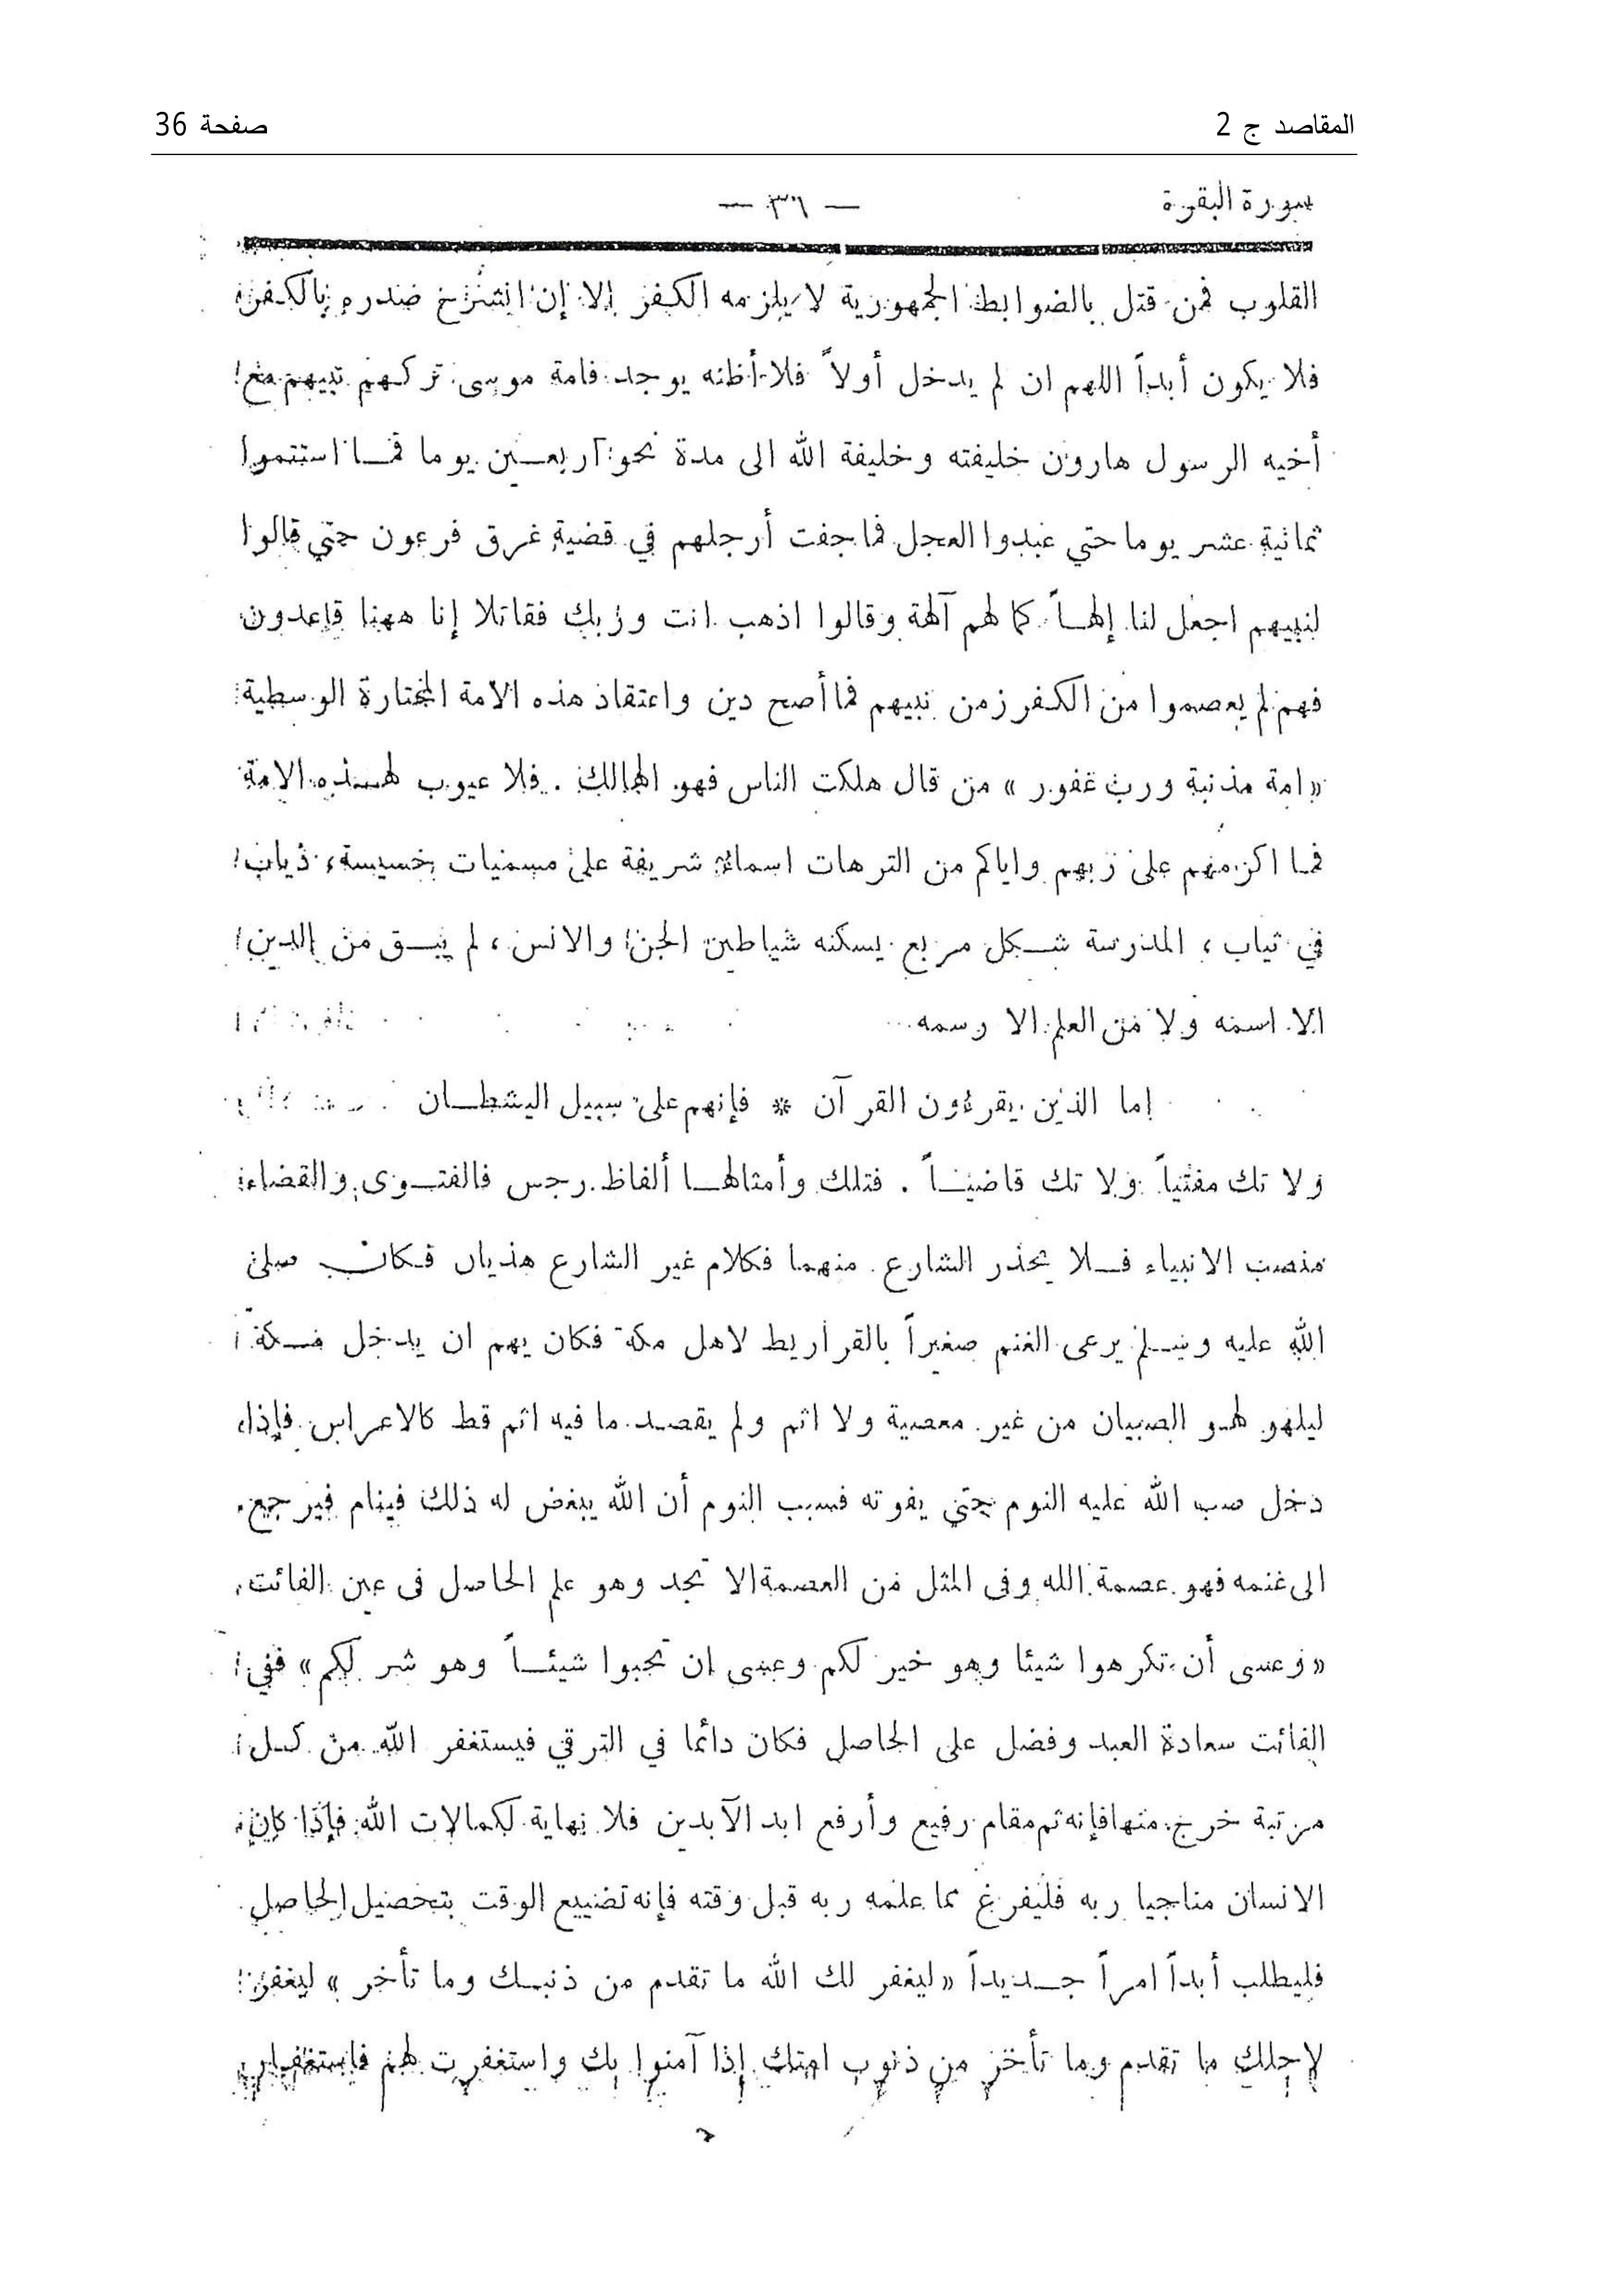 المقاصد ج 2
صفحة 36
سورة البقرة
— ٣٦ —
القلوب فمن قتل بالضوابط الجمهورية لا يلزمه الكفر إلا إن انشرح صدره بالكفر
فلا يكون أبداً اللهم ان لم يدخل أولاً فلا أظنه يوجد فامة موسى تركهم نبيهم مع
أخيه الرسول هارون خليفته وخليفة الله الى مدة نحو أربعين يوما فما استتموا
ثمانية عشر يوما حتي عبدوا العجل فما جفت أرجلهم في قضية غرق فرعون حتي قالوا
لنبيهم اجعل لنا إلهاً كما لهم آلهة وقالوا اذهب انت وربك فقاتلا إنا ههنا قاعدون
فهم لم يعصموا من الكفر زمن نبيهم فما أصح دين واعتقاد هذه الامة المختارة الوسطية
« امة مذنبة ورب غفور » من قال هلكت الناس فهو الهالك . فلا عيوب لهذه الامة
فما اكرمهم على ربهم واياكم من الترهات اسماء شريفة على مسميات خسيسة، ذياب
في ثياب ، المدرسة شكل مربع يسكنه شياطين الجن والانس ، لم يبق من الدين
الا اسمه ولا من العلم الا رسمه
إما الذين يقرءون القرآن * فإنهم على سبيل اليشطان
ولا تك مفتياً ولا تك قاضياً . فتلك وأمثالها ألفاظ رجس فالفتوى والقضاء
منصب الانبياء فلا يحذر الشارع منهما فكلام غير الشارع هذيان فكان صلى
الله عليه وسلم يرعى الغنم صغيراً بالقراريط لاهل مكة فكان يهم ان يدخل مكة
ليلهو لهو الصبيان من غير معصية ولا اثم ولم يقصد ما فيه اثم قط كالاعراس فإذا
دخل صب الله عليه النوم حتي يفوته فسبب النوم أن الله يبغض له ذلك فينام فيرجع
الى غنمه فهو عصمة الله وفى المثل من العصمة الا تجد وهو علم الحاصل فى عين الفائت
« وعسى أن تكرهوا شيئا وهو خير لكم وعسى ان تحبوا شيئاً وهو شر لكم » ففي
الفائت سعادة العبد وفضل على الحاصل فكان دائما في الترقي فيستغفر الله من كل
مرتبة خرج منها فإنه ثم مقام رفيع وأرفع ابد الآبدين فلا نهاية لكمالات الله فإذا كان
الانسان مناجيا ربه فليفرغ مما علمه ربه قبل وقته فإنه تضييع الوقت بتحصيل الحاصل
فليطلب أبداً امراً جديداً « ليغفر لك الله ما تقدم من ذنبك وما تأخر » ليغفر
لاجلك ما تقدم وما تأخر من ذنوب امتك إذا آمنوا بك واستغفرت لهم فاستغفار